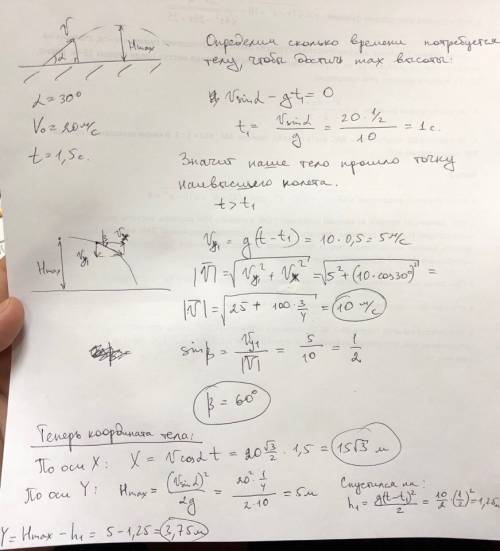 V
α
Hmax
Определим сколько времени потребуется
телу, чтобы достичь max высоты:
α = 30°
V₀ = 20 м/с
t = 1,5 с.
Vsinα - gt₁ = 0
t₁ = Vsinα / g = 20·1/2 / 10 = 1 с.
Значит наше тело прошло точку
наивысшего полета.
t > t₁
Hmax
β
Vx
Vy₁
Vy₁ = g(t-t₁) = 10·0,5 = 5 м/с
|V̄| = √(Vy₁² + Vx²) = √(5² + (10·cos30°)²) =
|V̄| = √(25 + 100·3/4) = 10 м/с
sinβ = Vy₁ / |V̄| = 5/10 = 1/2
β = 60°
Теперь координата тела:
По оси X: X = Vcosαt = 20 √3/2 · 1,5 = 15√3 м
По оси Y: Hmax = (Vsinα)² / 2g = 20²·1/4 / 2·10 = 5м
Спустился на:
h₁ = g(t-t₁)² / 2 = 10/2 · (1/2)² = 1,25м
Y = Hmax - h₁ = 5 - 1,25 = 3,75м